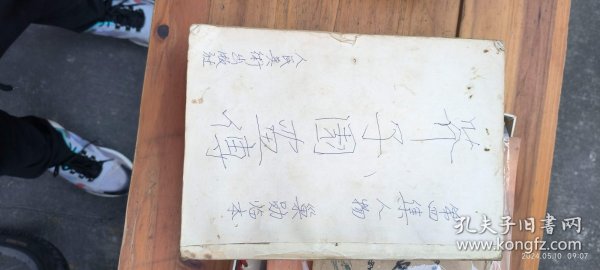 第四集 人物 巢勋临本
芥子園畫傳
人民美術出版社
孔夫子旧书网
www.kongfz.com
2024.05.10 09:07